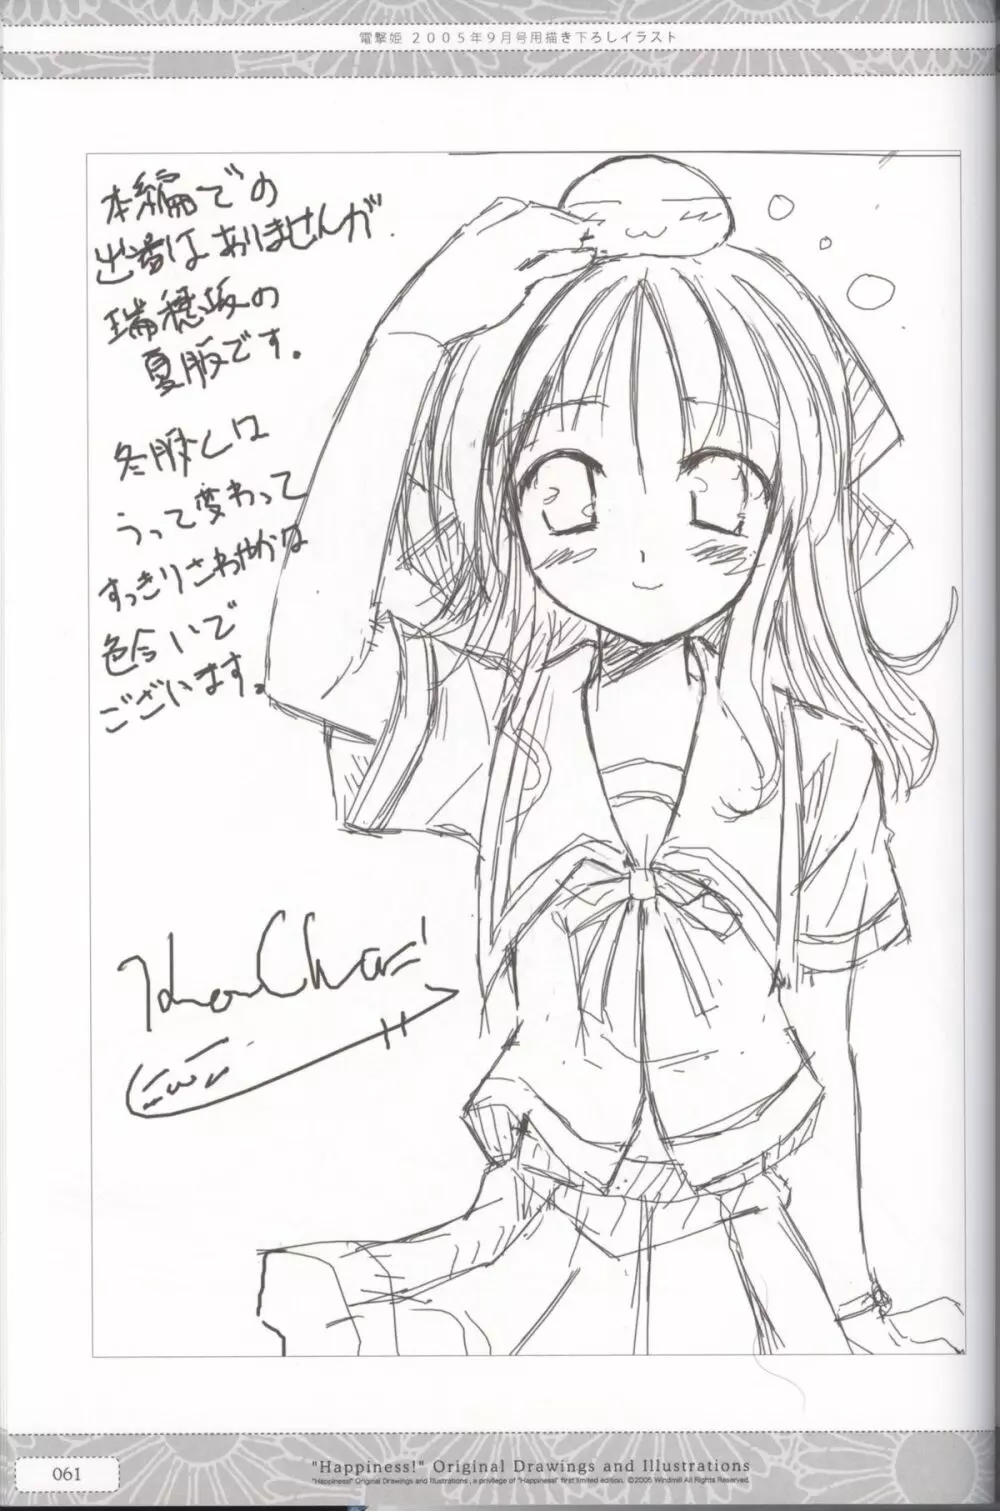 電撃姫 2005年9月号用描き下ろしイラスト
本編での
出番はありませんが
瑞穂坂の
夏服です。
冬服とは
うって変わって
すっきりさわやかな
色合いで
ございます。
061
"Happiness!" Original Drawings and Illustrations
"Happiness!" Original Drawings and Illustrations, a privilege of "Happiness!" first limited edition. ©2005 Windmill All Rights Reserved.